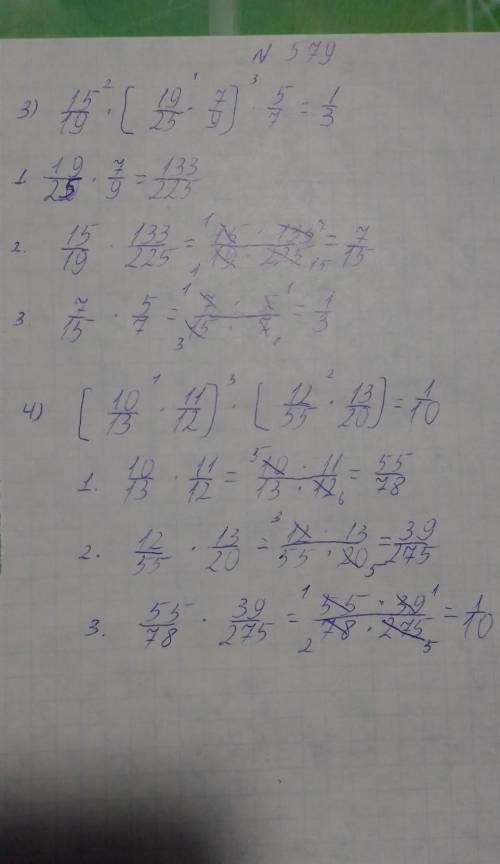 N 579
3) 15/19 ·² ( 19/25 ·¹ 7/9 ) ·³ 5/7 = 1/3
1. 19/25 · 7/9 = 133/225
2. 15/19 · 133/225 = 15 · 133 / 19 · 225 = 7/15
3 7/15 · 5/7 = 7 · 5 / 15 · 7 = 1/3
4) ( 10/13 ·¹ 11/12 ) ·³ ( 12/55 ·² 13/20 ) = 1/10
1. 10/13 · 11/12 = 10 · 11 / 13 · 12 = 55/78
2. 12/55 · 13/20 = 12 · 13 / 55 · 20 = 39/275
3. 55/78 · 39/275 = 55 · 39 / 78 · 275 = 1/10